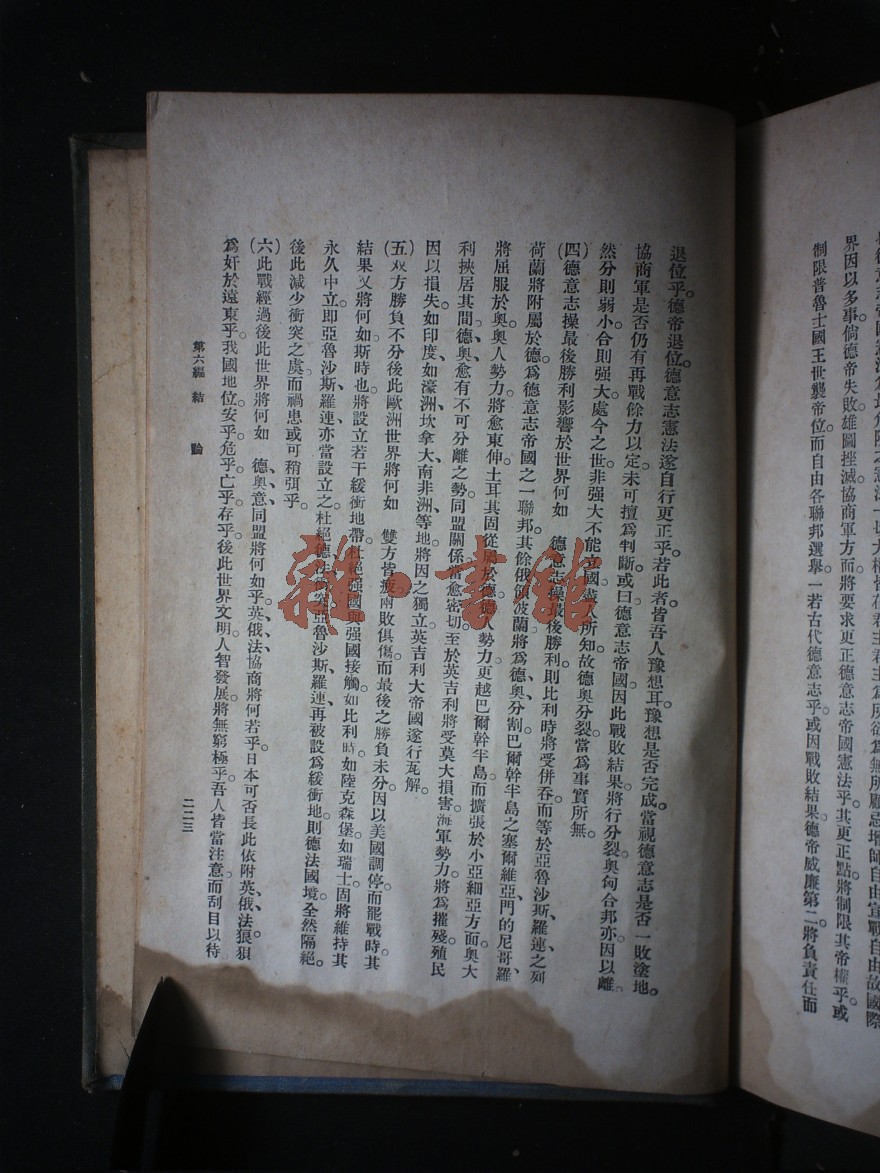 界因以多事倘德帝失敗雄圖挫滅協商軍方面將要求更正德意志帝國憲法乎其更正點將制限其帝權乎或
制限普魯士國王世襲帝位而自由各聯邦選舉一若古代德意志乎或因戰敗結果德帝威廉第二將負責任而
退位乎德帝退位德意志憲法遂自行更正乎若此者皆吾人豫想耳豫想是否完成當視德意志是否一敗塗地
協商軍是否仍有再戰餘力以定未可擅爲判斷或曰德意志帝國因此戰敗結果將行分裂奧匈合邦亦因以離
然分則弱小合則强大處今之世非强大不能國人所知故德奧分裂當爲事實所無
(四)德意志操最後勝利影響於世界何如 德意志操最後勝利則比利時將受併吞而等於亞魯沙斯、羅連之列
荷蘭將附屬於德爲德意志帝國之一聯邦其餘俄領波蘭將爲德奧分割巴爾幹半島之塞爾維亞門的尼哥羅
將屈服於奧奧人勢力將愈東伸土耳其固從屬於德德人勢力更越巴爾幹半島而擴張於小亞細亞方面奧大
利挾居其間德奧愈有不可分離之勢同盟關係當愈密切至於英吉利將受莫大損害海軍勢力將爲摧殘殖民
因以損失如印度、如濠洲、坎拿大、南非洲等地將因之獨立英吉利大帝國遂行瓦解。
(五)双方勝負不分後此歐洲世界將何如 雙方皆疲兩敗俱傷而最後之勝負未分因以美國調停而罷戰時其
結果又將何如斯時也將設立若干緩衝地帶杜絕强國與强國接觸如比利時如陸克森堡如瑞士固將維持其
永久中立即亞魯沙斯、羅連亦當設立之杜絕德法衝突亞魯沙斯、羅連再被設爲緩衝地則德法國境全然隔絕。
後此減少衝突之虞而禍患或可稍弭乎。
(六)此戰經過後此世界將何如 德、奧、意同盟將何如乎英、俄、法協商將何若乎日本可否長此依附英、俄、法狼狽
爲奸於遠東乎我國地位安乎危乎亡乎存乎後此世界文明人智發展將無窮極乎吾人皆當注意而刮目以待
第六編 結論
二二三
雜·書館